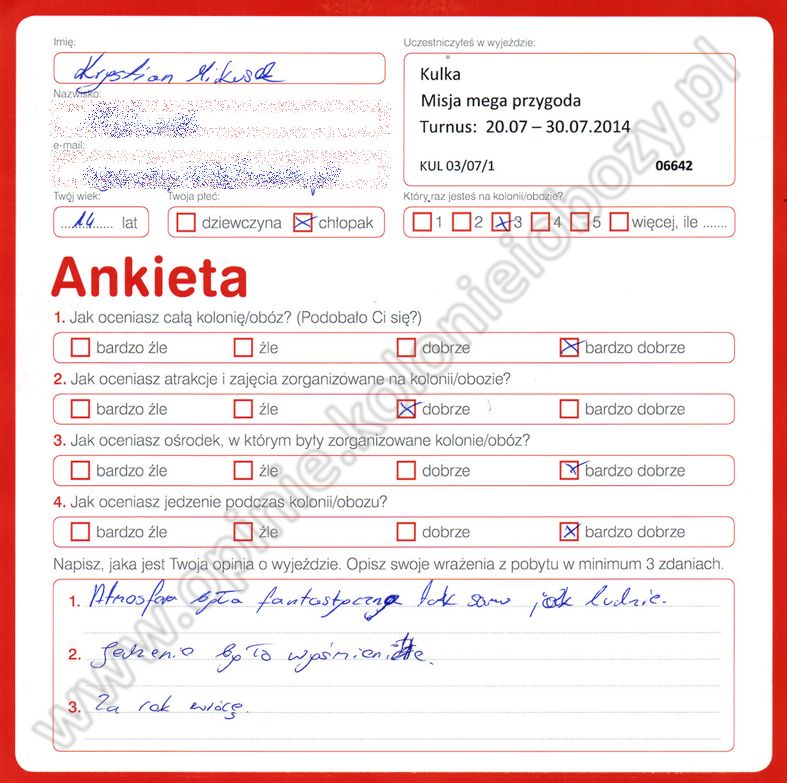 Imię:
Krystian Mikusek
Nazwisko:
e-mail:
Twój wiek:
14 lat
Twoja płeć:
dziewczyna chłopak
Uczestniczyłeś w wyjeździe:
Kulka
Misja mega przygoda
Turnus: 20.07 – 30.07.2014
KUL 03/07/1 06642
Który raz jesteś na kolonii/obozie?
1 2 3 4 5 więcej, ile .......
Ankieta
1. Jak oceniasz całą kolonię/obóz? (Podobało Ci się?)
bardzo źle źle dobrze bardzo dobrze
2. Jak oceniasz atrakcje i zajęcia zorganizowane na kolonii/obozie?
bardzo źle źle dobrze bardzo dobrze
3. Jak oceniasz ośrodek, w którym były zorganizowane kolonie/obóz?
bardzo źle źle dobrze bardzo dobrze
4. Jak oceniasz jedzenie podczas kolonii/obozu?
bardzo źle źle dobrze bardzo dobrze
Napisz, jaka jest Twoja opinia o wyjeździe. Opisz swoje wrażenia z pobytu w minimum 3 zdaniach.
1. Atmosfera była fantastyczna tak samo jak ludzie.
2. Jedzenie było wyśmienite.
3. Za rok wrócę.
www.opinie.kolonieiobozy.pl